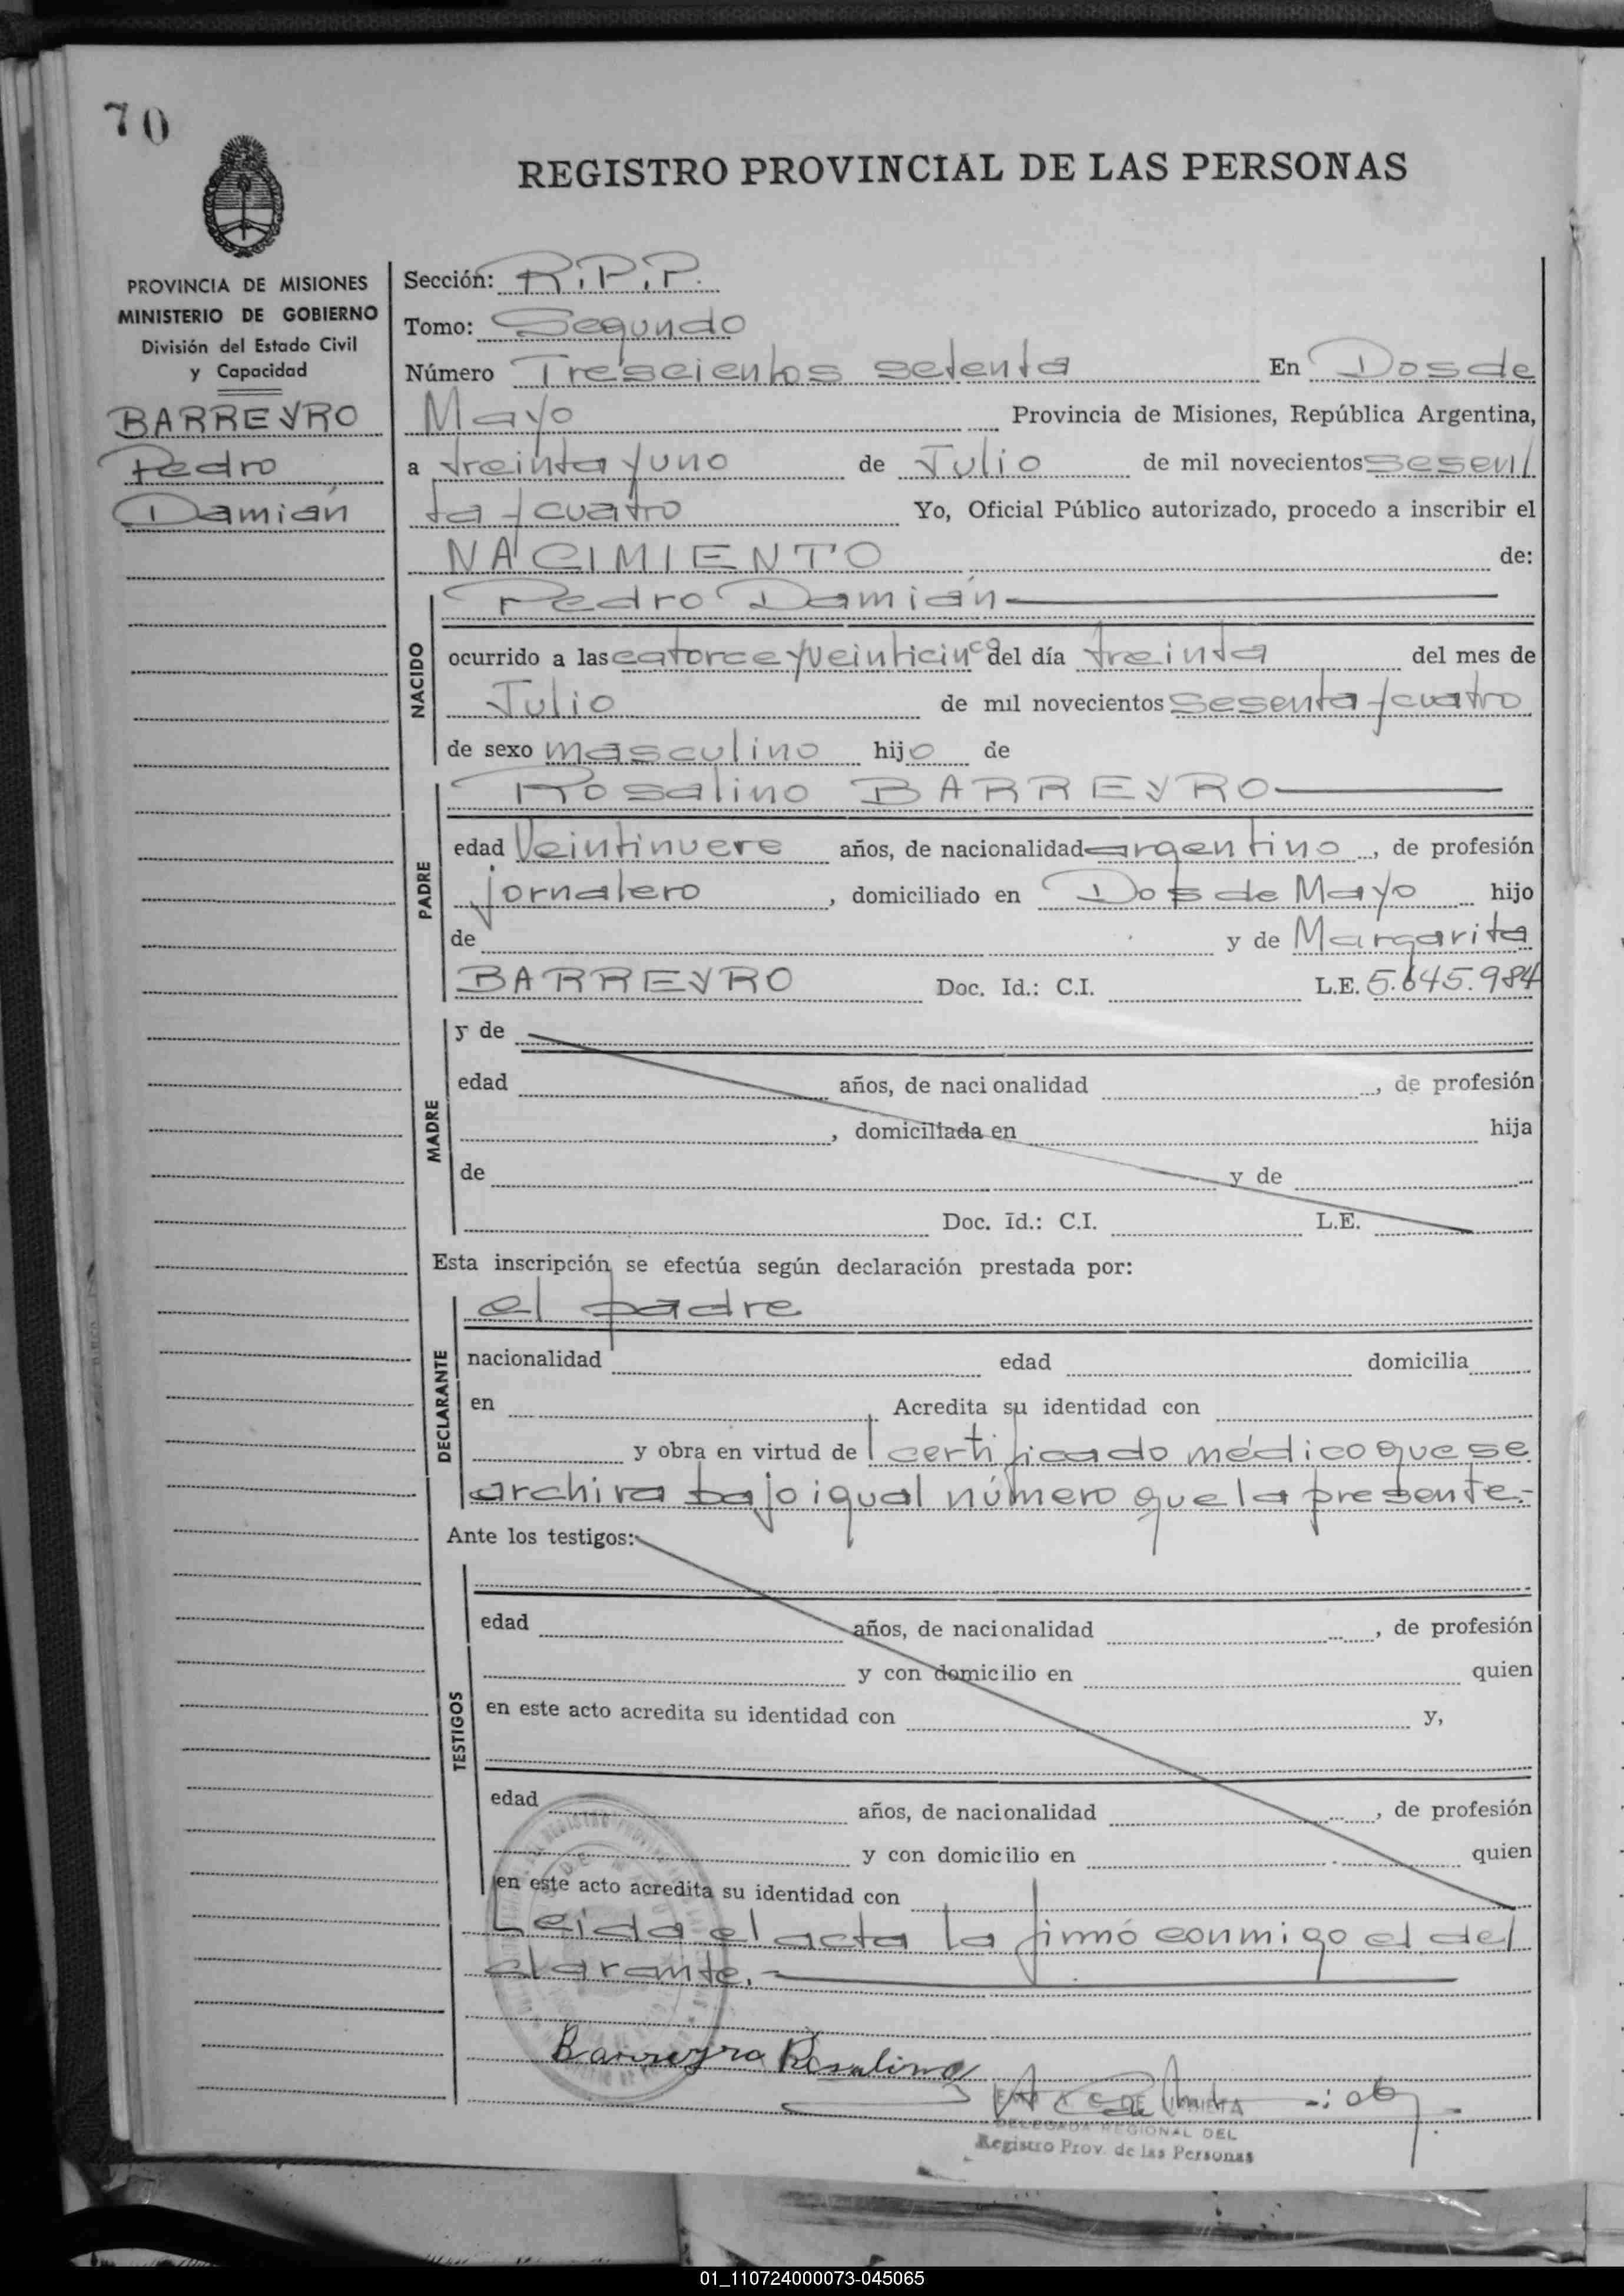 70
REGISTRO PROVINCIAL DE LAS PERSONAS
PROVINCIA DE MISIONES
MINISTERIO DE GOBIERNO
División del Estado Civil
y Capacidad
BARREYRO
Pedro
Damián
Sección: R.P.P.
Tomo: Segundo
Número Trescientos setenta En Dos de
Mayo Provincia de Misiones, República Argentina,
a treinta y uno de Julio de mil novecientos sesen
ta y cuatro Yo, Oficial Público autorizado, procedo a inscribir el
NACIMIENTO de:
NACIDO
Pedro Damián
ocurrido a las catorce y veinticinco del día treinta del mes de
Julio de mil novecientos sesenta y cuatro
de sexo masculino hijo de
PADRE
Rosalino BARREYRO
edad Veintinueve años, de nacionalidad argentino, de profesión
jornalero, domiciliado en Dos de Mayo hijo
de y de Margarita
BARREYRO Doc. Id.: C.I. L.E. 5.645.984
MADRE
y de
edad años, de nacionalidad , de profesión
, domiciliada en hija
de y de
Doc. Id.: C.I. L.E.
Esta inscripción se efectúa según declaración prestada por:
DECLARANTE
el padre
nacionalidad edad domicilia
en Acredita su identidad con
y obra en virtud de certificado médico que se
archiva bajo igual número que la presente.-
Ante los testigos:
TESTIGOS
edad años, de nacionalidad , de profesión
y con domicilio en quien
en este acto acredita su identidad con y,
edad años, de nacionalidad , de profesión
y con domicilio en quien
en este acto acredita su identidad con
Leida el acta la firmó conmigo el de
clarante.-
Barreyro Rosalino
DELEGADA REGIONAL DEL
Registro Prov. de las Personas
01_110724000073-045065